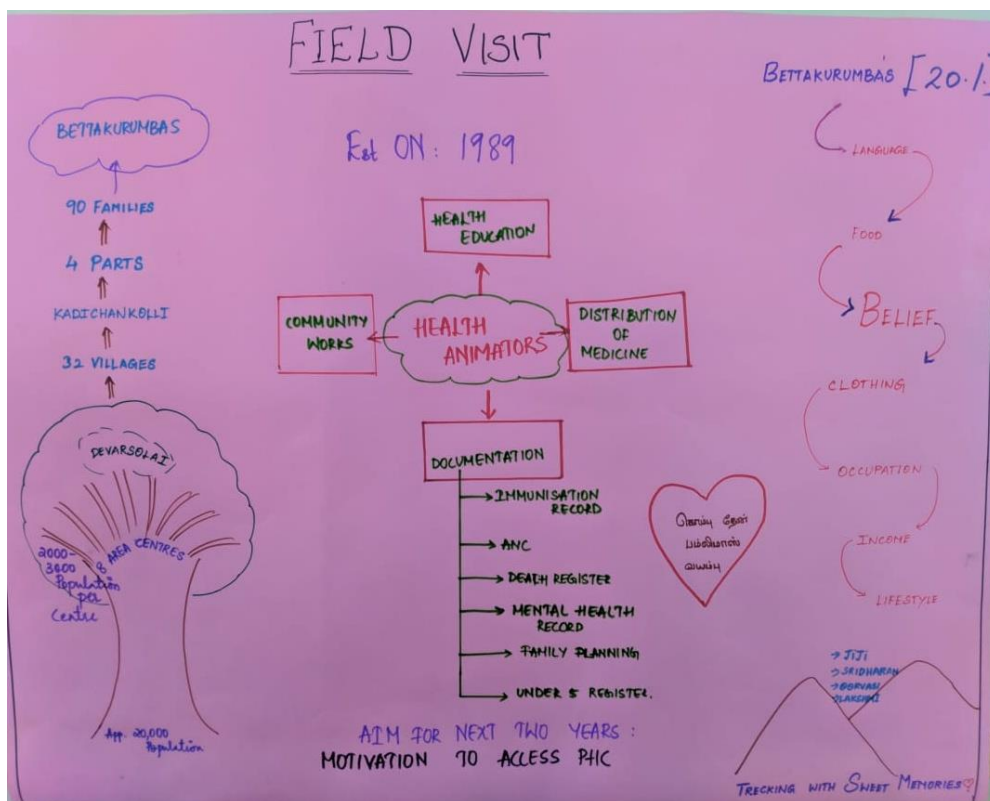 FIELD VISIT
Est ON: 1989
BETTAKURUMBAS
90 FAMILIES
4 PARTS
KADICHANKOLLI
32 VILLAGES
DEVARSOLAI
8 AREA CENTRES
2000-
3000
Population
per
Centre
App. 20,000
Population
HEALTH
EDUCATION
COMMUNITY
WORKS
HEALTH
ANIMATORS
DISTRIBUTION
OF
MEDICINE
DOCUMENTATION
IMMUNISATION
RECORD
ANC
DEATH REGISTER
MENTAL HEALTH
RECORD
FAMILY PLANNING
UNDER 5 REGISTER.
AIM FOR NEXT TWO YEARS :
MOTIVATION TO ACCESS PHC
BETTAKURUMBAS [20%]
LANGUAGE
FOOD
BELIEF
CLOTHING
OCCUPATION
INCOME
LIFESTYLE
தேன்
JIJI
SRIDHARAN
LAKSHMI
TRECKING WITH SWEET MEMORIES